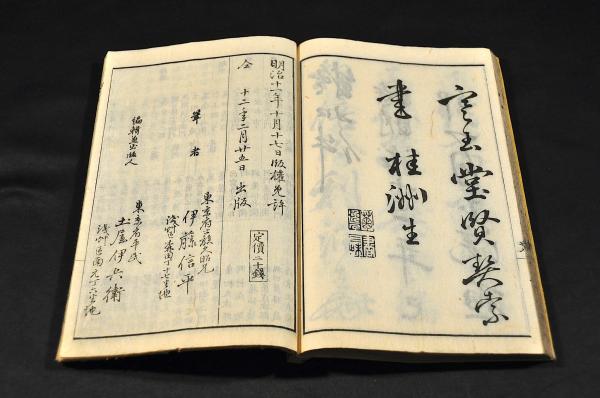 宝玉堂賢契索
書 桂洲生
明治十一年十月十七日版權免許
仝 十二年二月廿五日 出版
定價二十錢
筆者
東京府士族
伊藤信平
編輯並出版人
東京府平民
土屋伊兵衛
淺艸區南元丁六番地